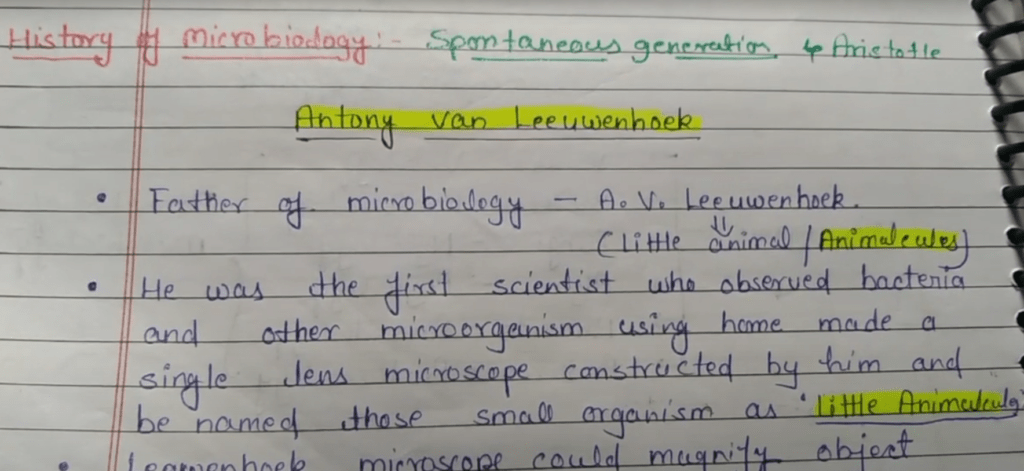 History of microbiology:- Spontaneous generation ↳ Aristotle
Antony van Leeuwenhoek
• Father of microbiology – A. V. Leeuwenhoek.
(Little animal / Animalcules)
• He was the first scientist who observed bacteria
and other microorganism using home made a
single lens microscope constructed by him and
be named those small organism as 'Little Animalculs'
• Leamenhoek microscope could magnify object